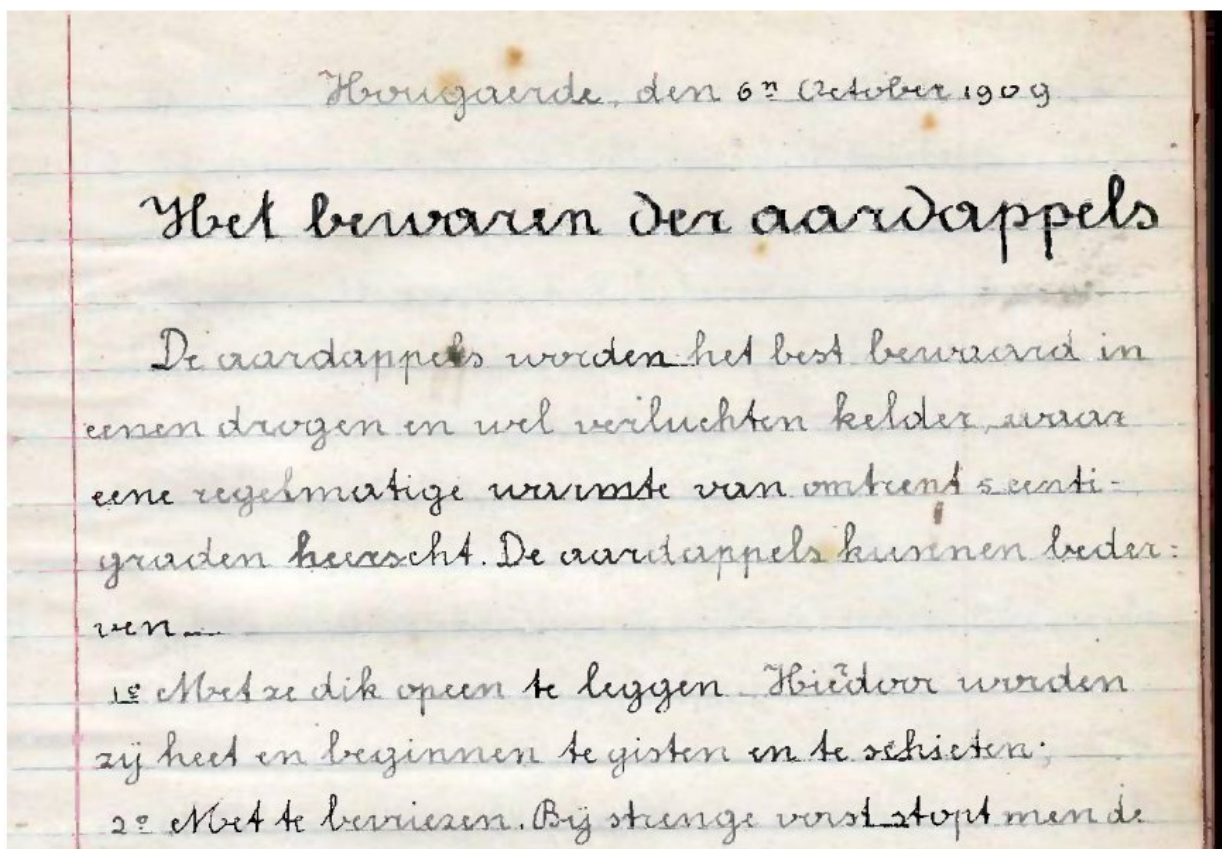 Hougaerde, den 6n October 1909
Het bewaren der aardappels
De aardappels worden het best bewaard in
eenen drogen en wel verluchten kelder, waar
eene regelmatige warmte van omtrent 5 centi-
graden heerscht. De aardappels kunnen beder:
ven
1º Met ze dik opeen te leggen. Hierdoor worden
zij heet en beginnen te gisten en te schieten;
2º Met te bevriezen. Bij strenge vorst stopt men de